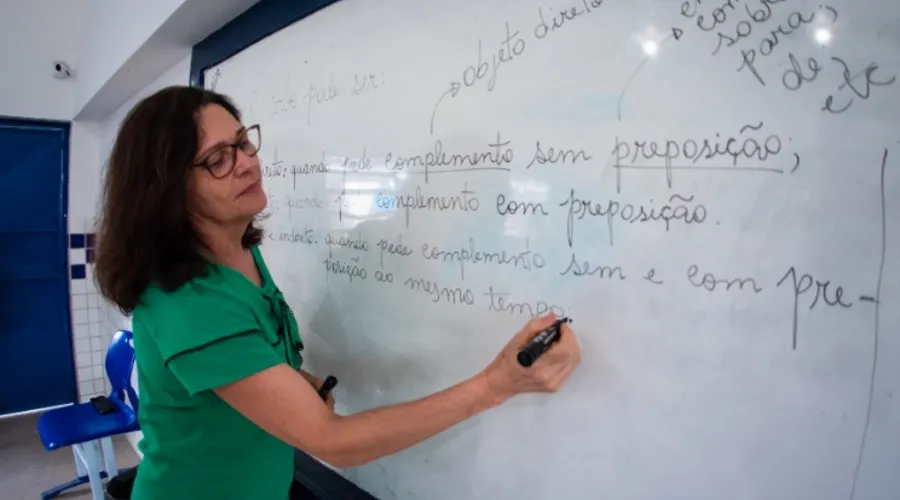 pode ser:
objeto direto
com
sobre
para,
de
etc
quando pede complemento sem preposição;
quando complemento com preposição.
indireto: quando pede complemento sem e com pre-
posição ao mesmo tempo